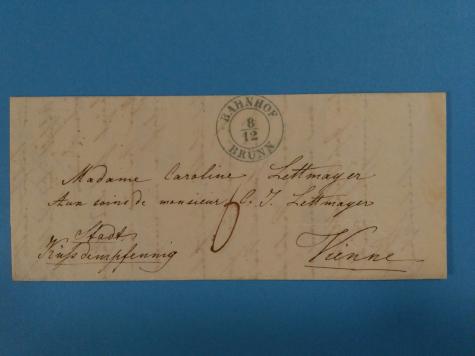 BAHNHOF
8/12
BRÜNN
Madame Caroline Lettmayer
Aux soins de monsieur C. J. Lettmayer
6
Stadt
Küssdenpfennig
Vienne